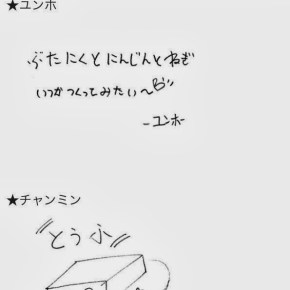 ★ユンホ
ぶたにくと にんじんと ねぎ
いつか つくってみたい〜
-ユンホ-
★チャンミン
"とうふ"